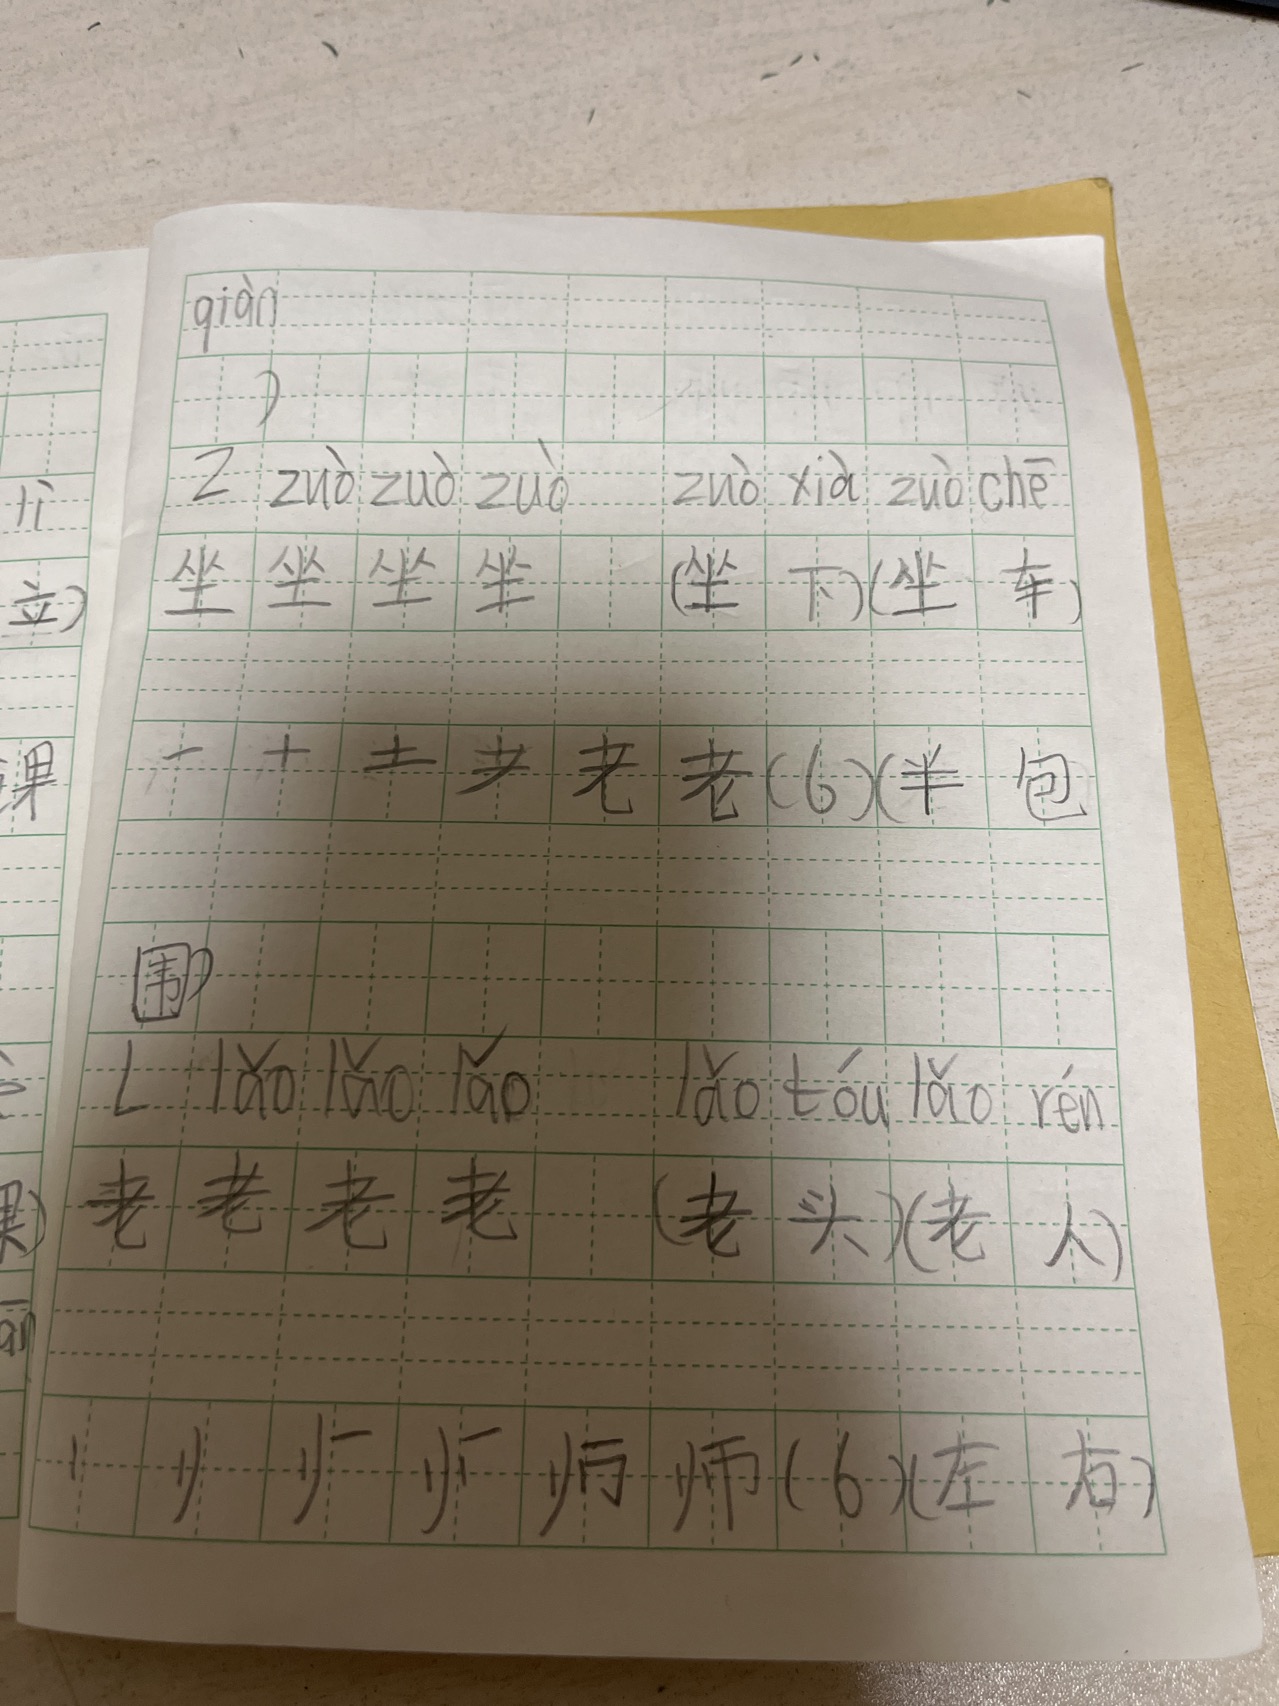 qiàn
)
Z zuò zuò zuò zuò xià zuò chē
坐 坐 坐 坐 (坐 下)(坐 车)
一 十 土 耂 老 老 (6)(半 包
围)
L lǎo lǎo lǎo lǎo tóu lǎo rén
老 老 老 老 (老 头)(老 人)
师 (6)(左 右)
tì
立)
课
果)